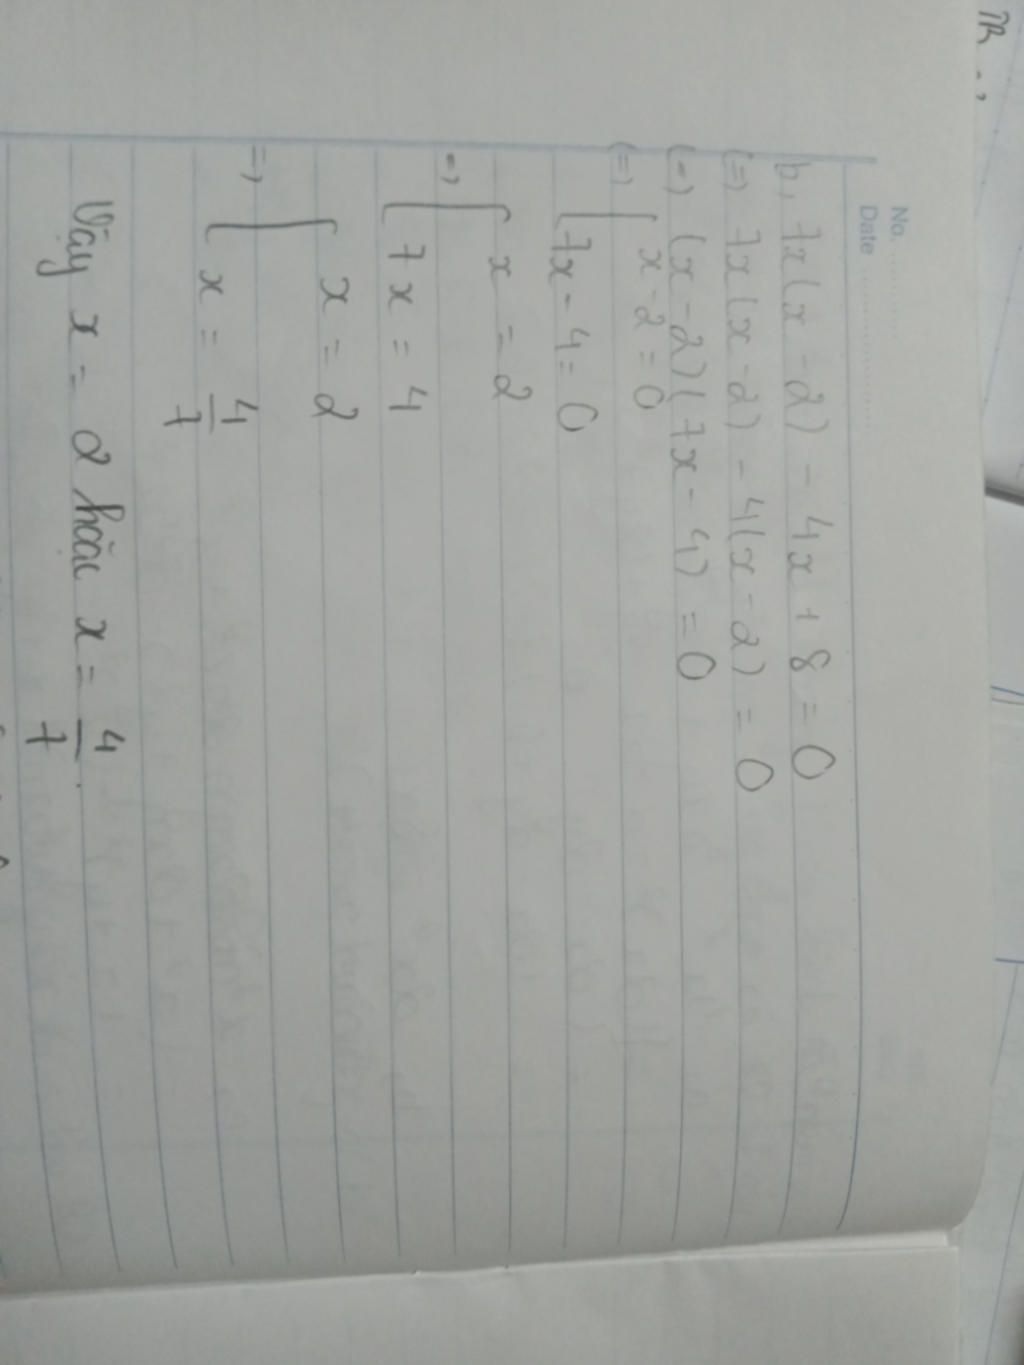 No. ............
Date ......................
b, 7x(x - 2) - 4x + 8 = 0
(=) 7x(x - 2) - 4(x - 2) = 0
(=) (x - 2)(7x - 4) = 0
(=) [ x - 2 = 0
7x - 4 = 0
=> [ x = 2
7x = 4
=> [ x = 2
x = 4/7
Vậy x = 2 hoặc x = 4/7.